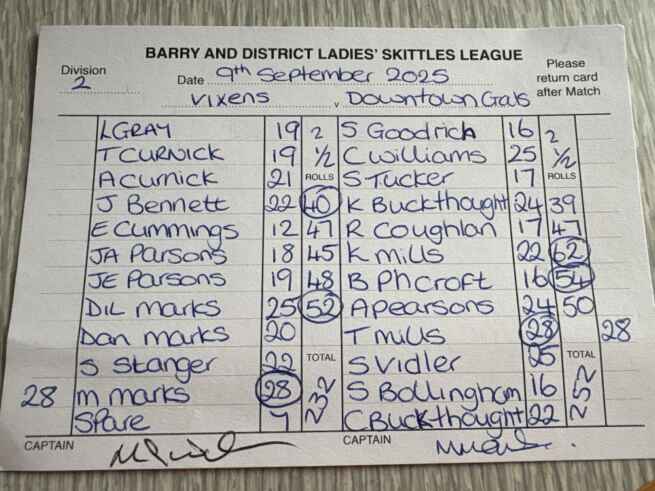 BARRY AND DISTRICT LADIES' SKITTLES LEAGUE
Division 2
Date 9th September 2025
Please return card after Match
Vixens v Downtown Gals
L GRAY 19 2 S Goodrich 16 2
T CURNICK 19 1/2 C Williams 25 1/2
A Curnick 21 ROLLS S Tucker 17 ROLLS
J Bennett 22 40 K Buckthought 24 39
E Cummings 12 47 R Coughlan 17 47
JA Parsons 18 45 K Mills 22 62
JE Parsons 19 48 B Phcroft 16 54
DIL Marks 25 52 A Pearsons 24 50
Dan Marks 20 T Mills 28 28
S Stanger 22 TOTAL S Vidler 25 TOTAL
28 M Marks 28 232 S Bollingham 16 252
Spare 7 C Buckthought 22
CAPTAIN CAPTAIN